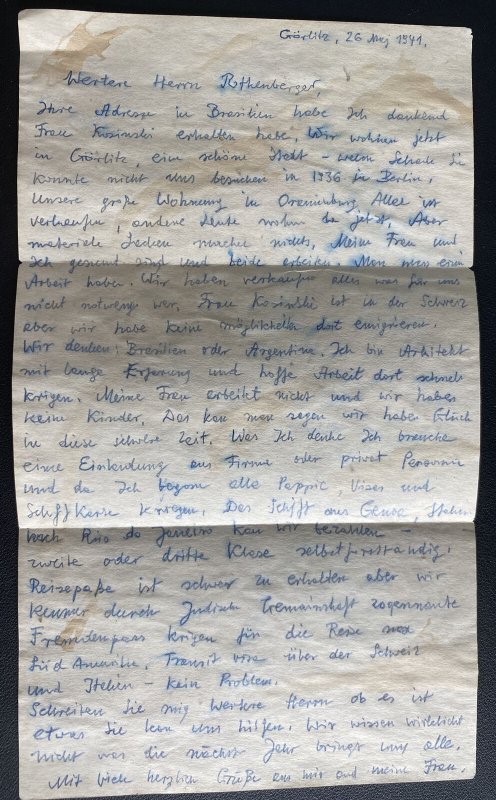 Görlitz, 26 Maj 1941.
Wertere Herrn Rothenberger,
Ihre Adresse in Brasilien habe Ich dankend
Frau Kosinski erhalten habe. Wir wohnen jetzt
in Görlitz, eine schöne Stadt – Schade Sie
konnte nicht uns besuchen in 1936 in Berlin.
Unsere große Wohnung in Oranienburg Alles ist
verkaufen, andere Leute wohn da jetzt. Aber
materiele Sachen machen nichts. Meine Frau und
Ich gesund sind und beide arbeiten. Man muss ein
Arbeit haben. Wir haben verkaufen alles was für uns
nicht notwenig war. Frau Kosinski ist in der Schweiz
aber wir habe keine möglichkeiten dort emigrieren.
Wir denken: Brasilien oder Argentina. Ich bin Arhitekt
mit lange Erfarung und hoffe Arbeit dort schnels
krigen. Meine Frau arbeitet nicht und wir haben
keine Kinder. Das kan man sagen wir haben Glück
in diese schwere Zeit. Was Ich denke Ich brauche
eine Einladung aus Firma oder privat Personnen
und da Ich alle Pappie, Visas und
Schiffkarte kriegen. Das Schiff aus Genoa, Italien
nach Rio do Janeiro kan wir bezahlen –
zweite oder dritte Klase selbstferständig.
Reisepaße ist schwer zu erhalten aber wir
kennen durch Judische Gemainschaft zogennante
Fremdenpass krigen für die Reise nach
Süd Amerika. Transit visa über der Schweiz
und Italien – kein Problem.
Schreiben Sie mig Wertere Herrn ob es ist
etwas Sie kan uns hilfen. Wir wissen wirklicht
nicht was die nächste Jahr bringt uns alle.
Mit viele herzlien Grüße aus mir und meine Frau.